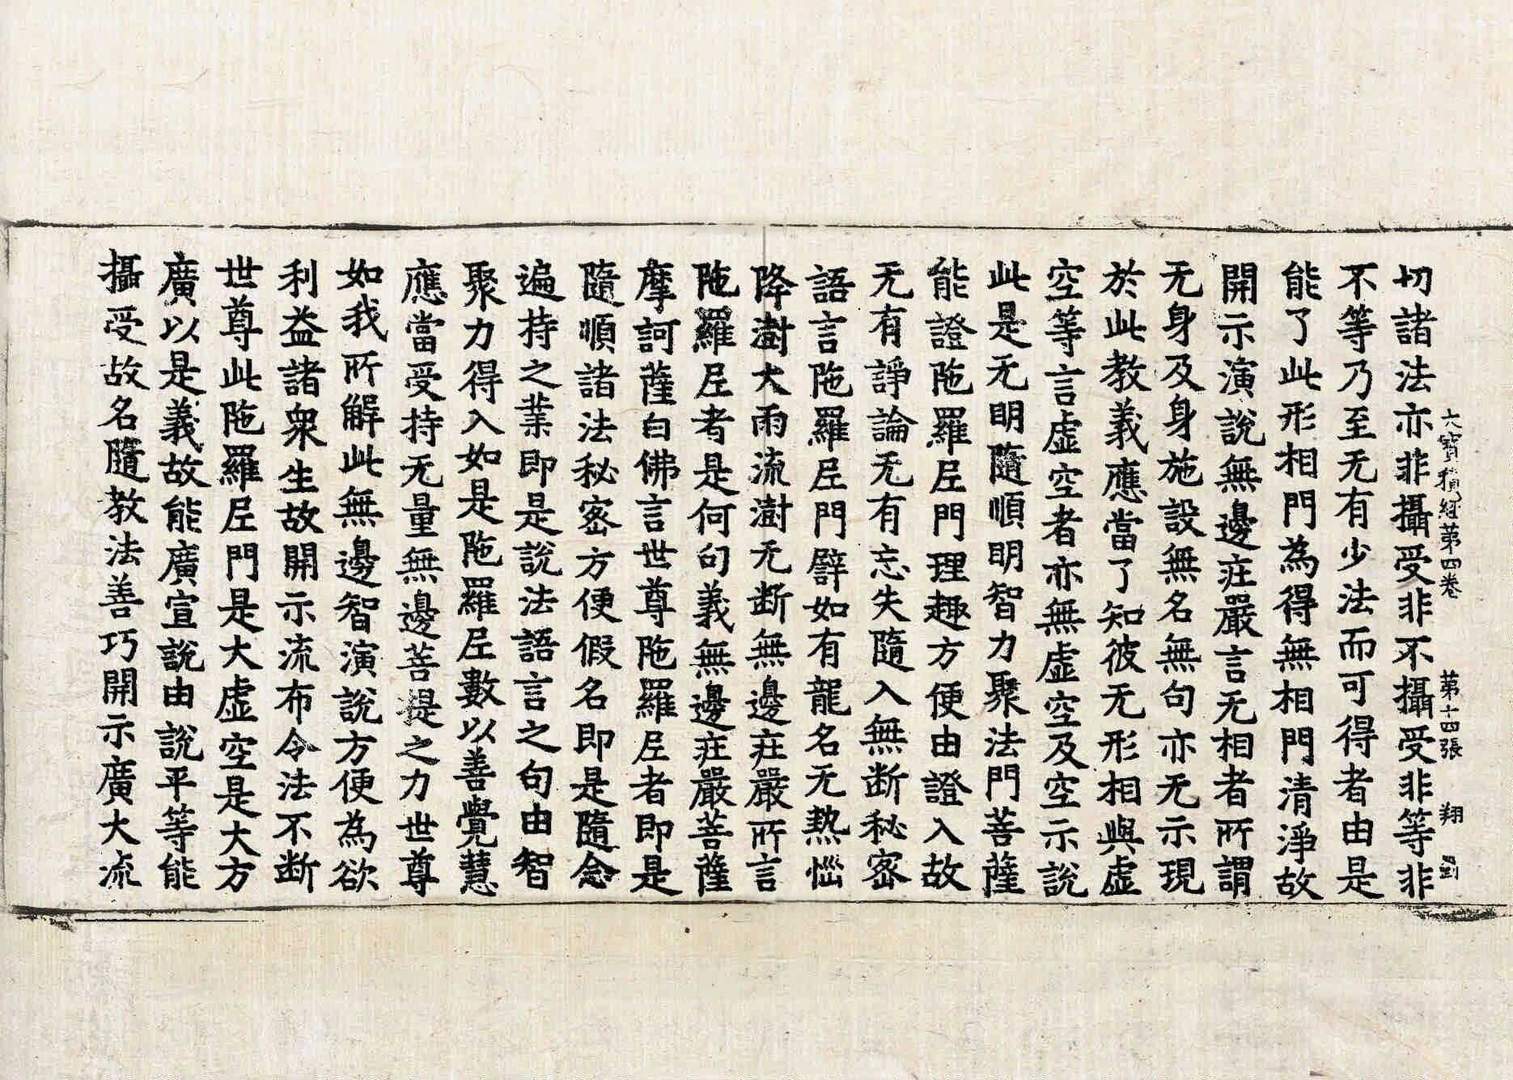 大寶積經第四卷 第十四張 翔
切諸法亦非攝受非不攝受非等非
不等乃至无有少法而可得者由是
能了此形相門為得無相門清淨故
開示演說無邊莊嚴言无相者所謂
无身及身施設無名無句亦无示現
於此教義應當了知彼无形相與虛
空等言虛空者亦無虛空及空示說
此是无明隨順明智力聚法門菩薩
能證陁羅尼門理趣方便由證入故
无有諍論无有忘失隨入無斷秘密
語言陁羅尼門譬如有龍名无熱惱
降澍大雨流澍无断無邊莊嚴所言
陁羅尼者是何句義無邊莊嚴菩薩
摩訶薩白佛言世尊陁羅尼者即是
隨順諸法秘密方便假名即是隨念
遍持之業即是說法語言之句由智
聚力得入如是陁羅尼數以善覺慧
應當受持无量無邊菩提之力世尊
如我所解此無邊智演說方便為欲
利益諸衆生故開示流布令法不断
世尊此陁羅尼門是大虛空是大方
廣以是義故能廣宣說由說平等能
攝受故名隨教法善巧開示廣大流